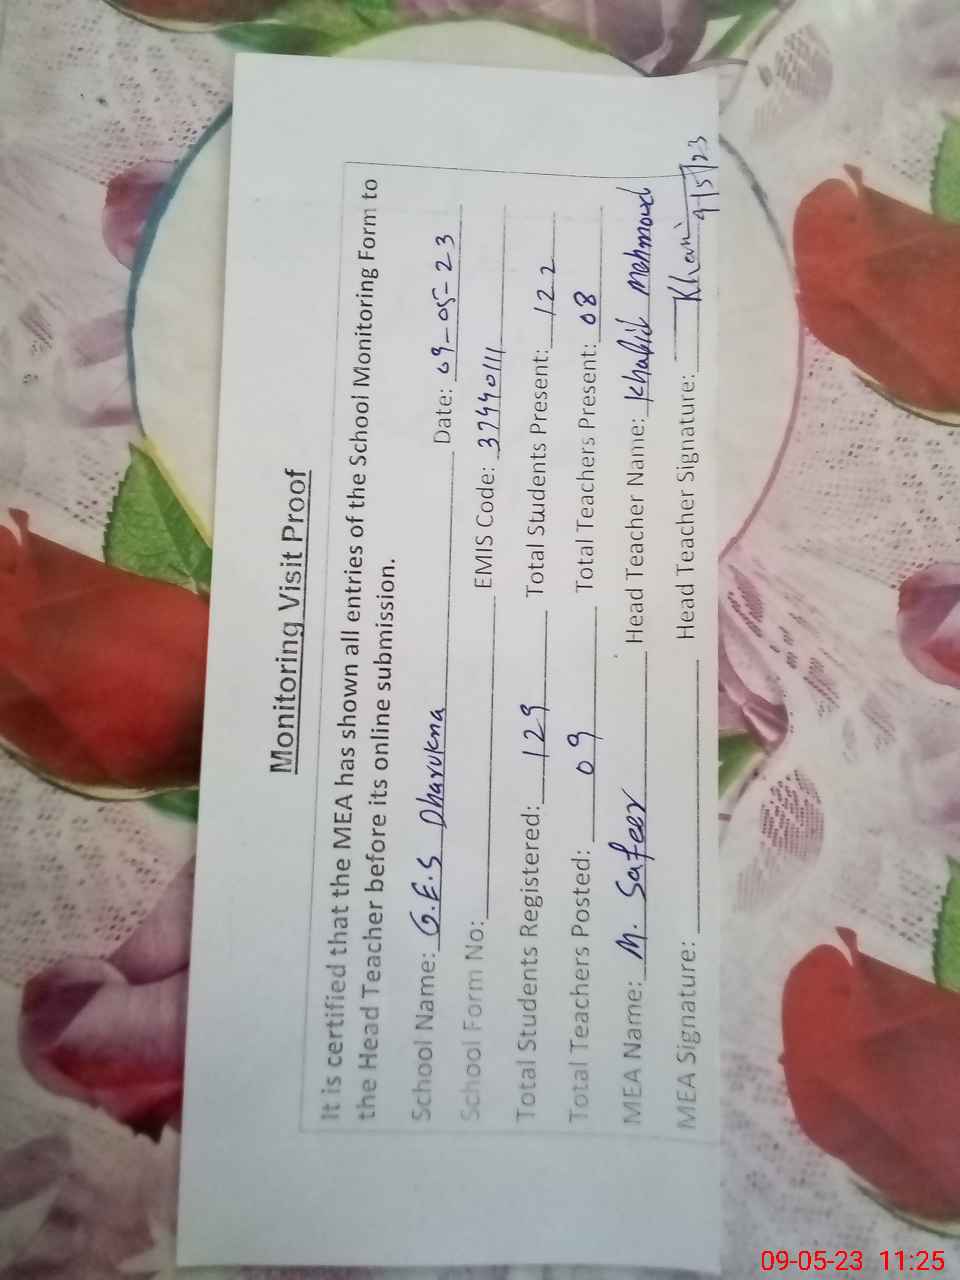 Monitoring Visit Proof
It is certified that the MEA has shown all entries of the School Monitoring Form to
the Head Teacher before its online submission.
School Name: G.E.S Dharukna Date: 09-05-23
School Form No: EMIS Code: 37440111
Total Students Registered: 129 Total Students Present: 122
Total Teachers Posted: 09 Total Teachers Present: 08
MEA Name: M. Safeer Head Teacher Name: Khalid Mehmood
MEA Signature: Head Teacher Signature: Khan 9/5/23
09-05-23 11:25